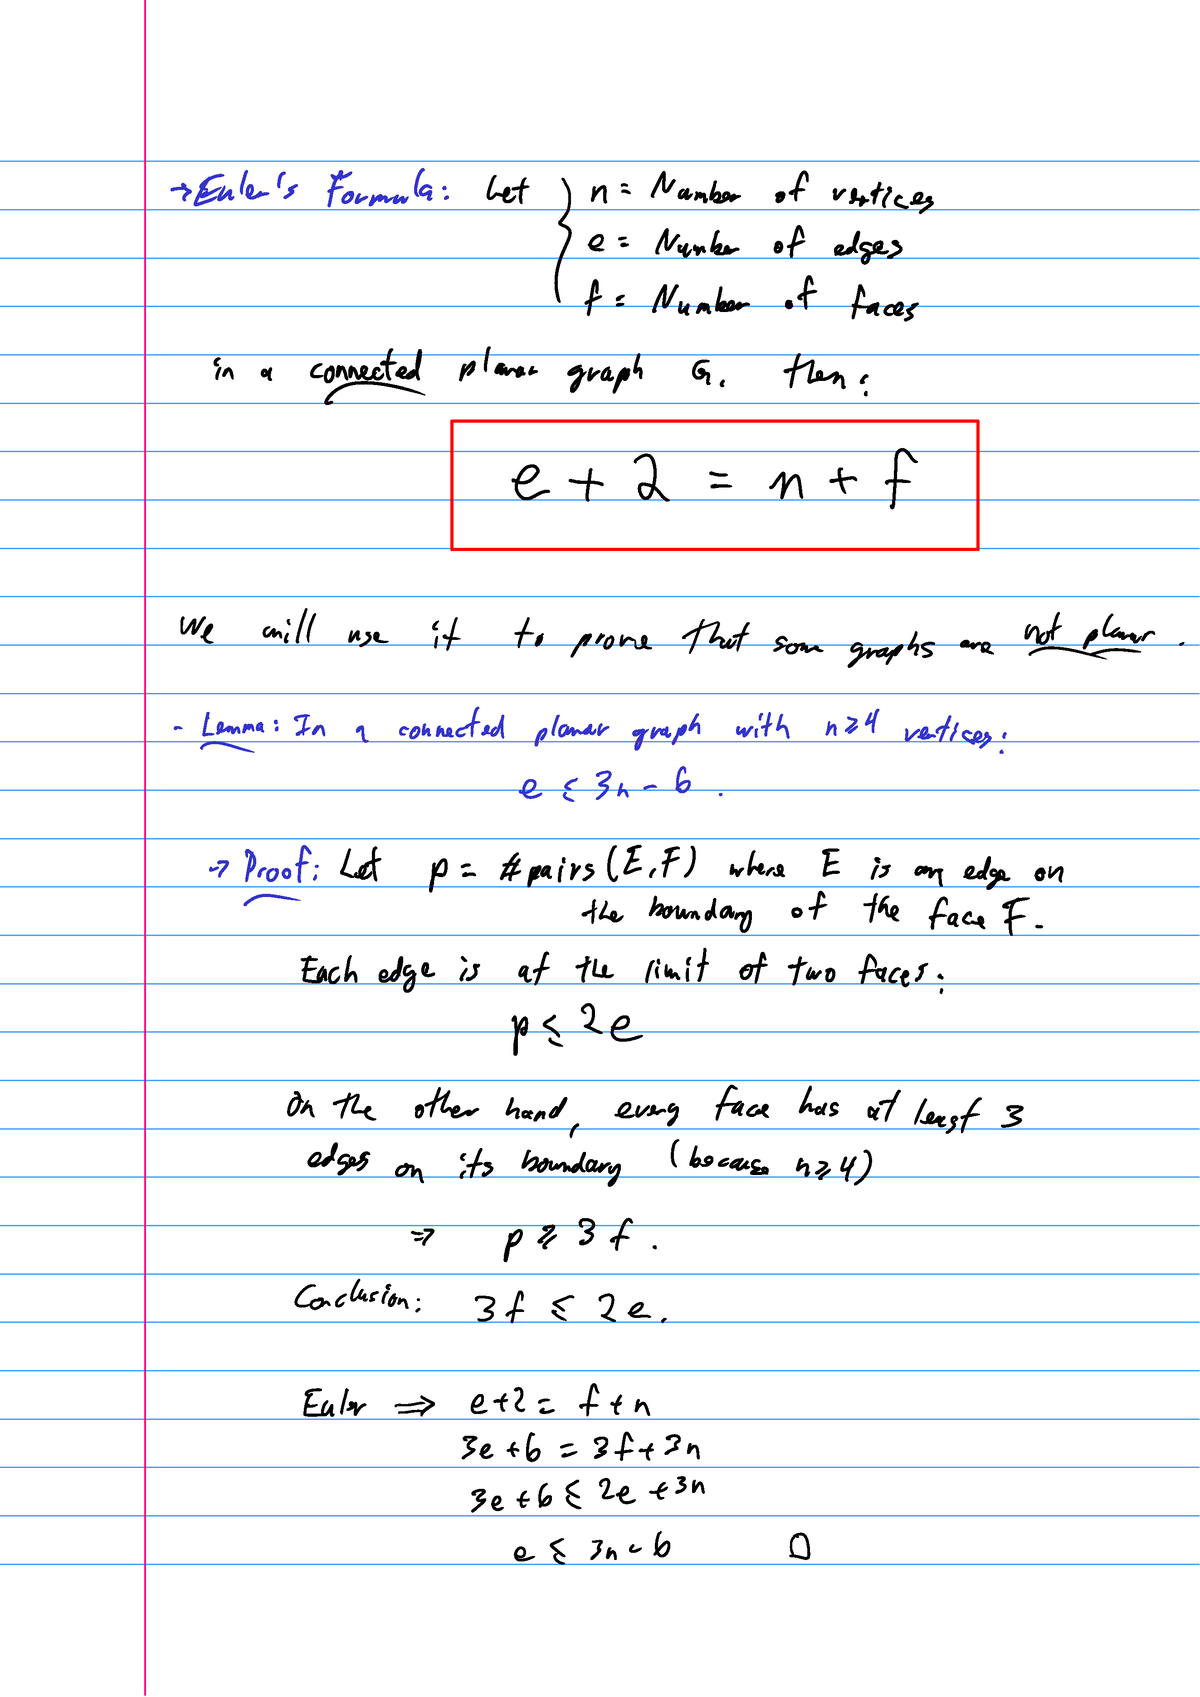 →Euler's Formula: Let { n = Number of vertices
e = Number of edges
f = Number of faces
in a connected planar graph G. then:
e + 2 = n + f
We will use it to prove that some graphs are not planar.
- Lemma: In a connected planar graph with n ≥ 4 vertices:
e ≤ 3n - 6.
→ Proof: Let p = # pairs (E, F) where E is an edge on
the boundary of the face F.
Each edge is at the limit of two faces:
p ≤ 2e
On the other hand, every face has at least 3
edges on its boundary (because n ≥ 4)
⇒ p ≥ 3f.
Conclusion: 3f ≤ 2e.
Euler ⇒ e+2 = f+n
3e+6 = 3f+3n
3e+6 ≤ 2e+3n
e ≤ 3n-6 □